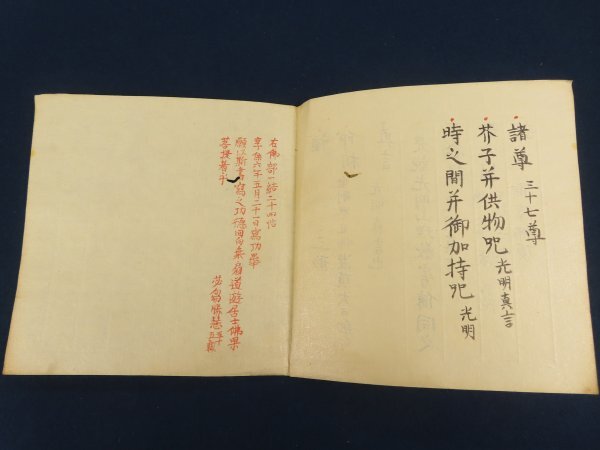 諸尊 三十七尊
芥子并供物呪 光明真言
時之間并御加持呪 光明
右佛部一結二十四帖
享保六年五月二十一日寫功畢
願以斯書寫之功德回向 道遊居士佛果
菩提者乎